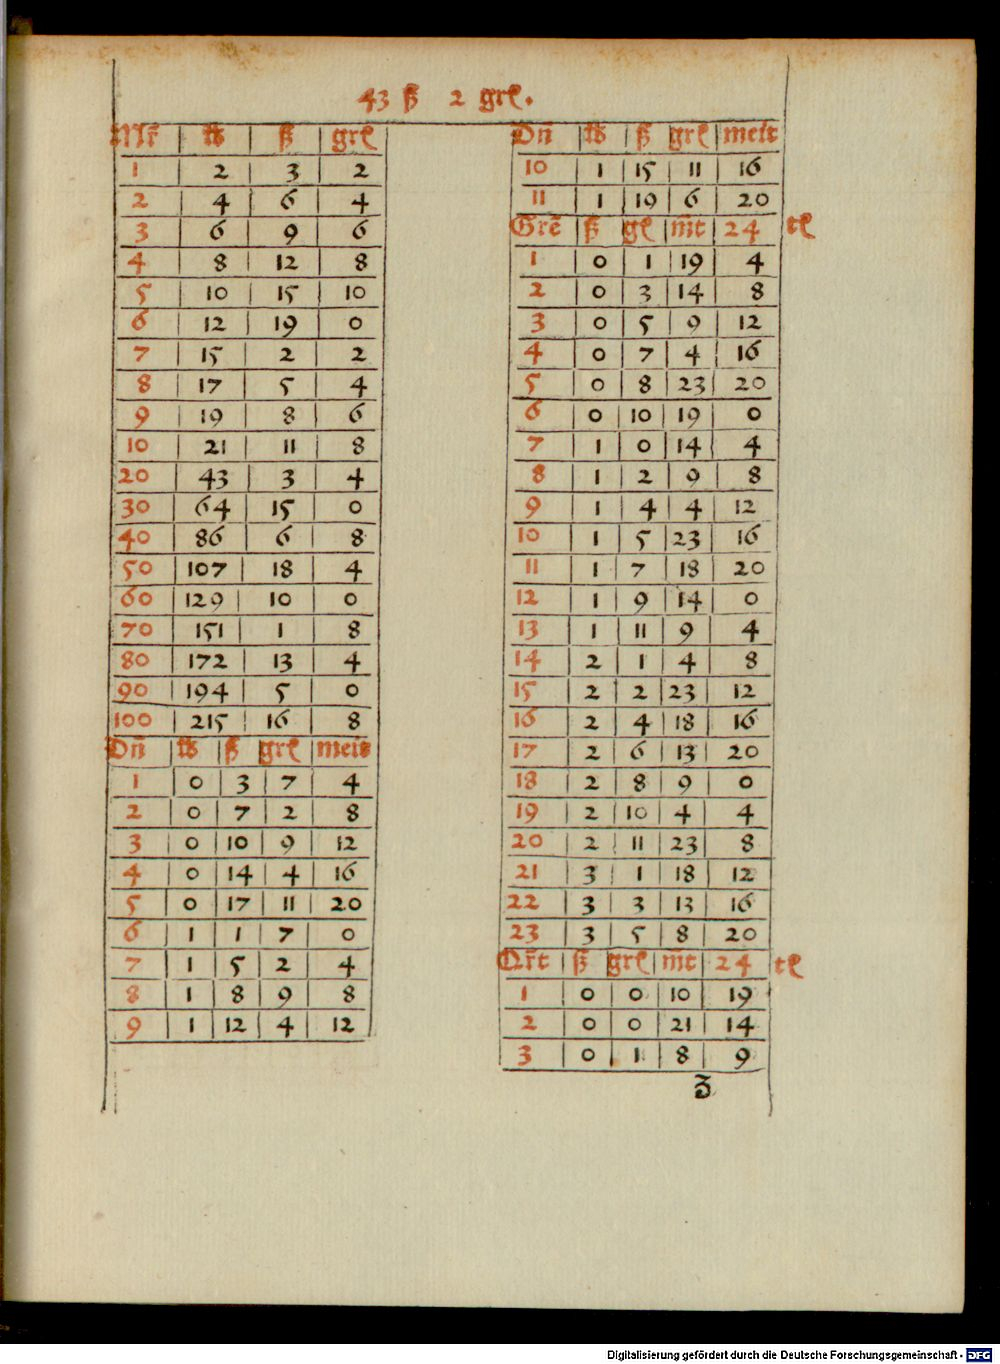 43 ß 2 grł.
Mr̄ | ℔ | ß | grł
1 | 2 | 3 | 2
2 | 4 | 6 | 4
3 | 6 | 9 | 6
4 | 8 | 12 | 8
5 | 10 | 15 | 10
6 | 12 | 19 | 0
7 | 15 | 2 | 2
8 | 17 | 5 | 4
9 | 19 | 8 | 6
10 | 21 | 11 | 8
20 | 43 | 3 | 4
30 | 64 | 15 | 0
40 | 86 | 6 | 8
50 | 107 | 18 | 4
60 | 129 | 10 | 0
70 | 151 | 1 | 8
80 | 172 | 13 | 4
90 | 194 | 5 | 0
100 | 215 | 16 | 8
Dn̄ | ℔ | ß | grł | meit
1 | 0 | 3 | 7 | 4
2 | 0 | 7 | 2 | 8
3 | 0 | 10 | 9 | 12
4 | 0 | 14 | 4 | 16
5 | 0 | 17 | 11 | 20
6 | 1 | 1 | 7 | 0
7 | 1 | 5 | 2 | 4
8 | 1 | 8 | 9 | 8
9 | 1 | 12 | 4 | 12
Dn̄ | ℔ | ß | grł | meit
10 | 1 | 15 | 11 | 16
11 | 1 | 19 | 6 | 20
Grē | ß | gł | m̄t | 24 tł
1 | 0 | 1 | 19 | 4
2 | 0 | 3 | 14 | 8
3 | 0 | 5 | 9 | 12
4 | 0 | 7 | 4 | 16
5 | 0 | 8 | 23 | 20
6 | 0 | 10 | 19 | 0
7 | 1 | 0 | 14 | 4
8 | 1 | 2 | 9 | 8
9 | 1 | 4 | 4 | 12
10 | 1 | 5 | 23 | 16
11 | 1 | 7 | 18 | 20
12 | 1 | 9 | 14 | 0
13 | 1 | 11 | 9 | 4
14 | 2 | 1 | 4 | 8
15 | 2 | 2 | 23 | 12
16 | 2 | 4 | 18 | 16
17 | 2 | 6 | 13 | 20
18 | 2 | 8 | 9 | 0
19 | 2 | 10 | 4 | 4
20 | 2 | 11 | 23 | 8
21 | 3 | 1 | 18 | 12
22 | 3 | 3 | 13 | 16
23 | 3 | 5 | 8 | 20
Qr̄t | ß | grł | m̄t | 24 tł
1 | 0 | 0 | 10 | 19
2 | 0 | 0 | 21 | 14
3 | 0 | 1 | 8 | 9
3
Digitalisierung gefördert durch die Deutsche Forschungsgemeinschaft - DFG